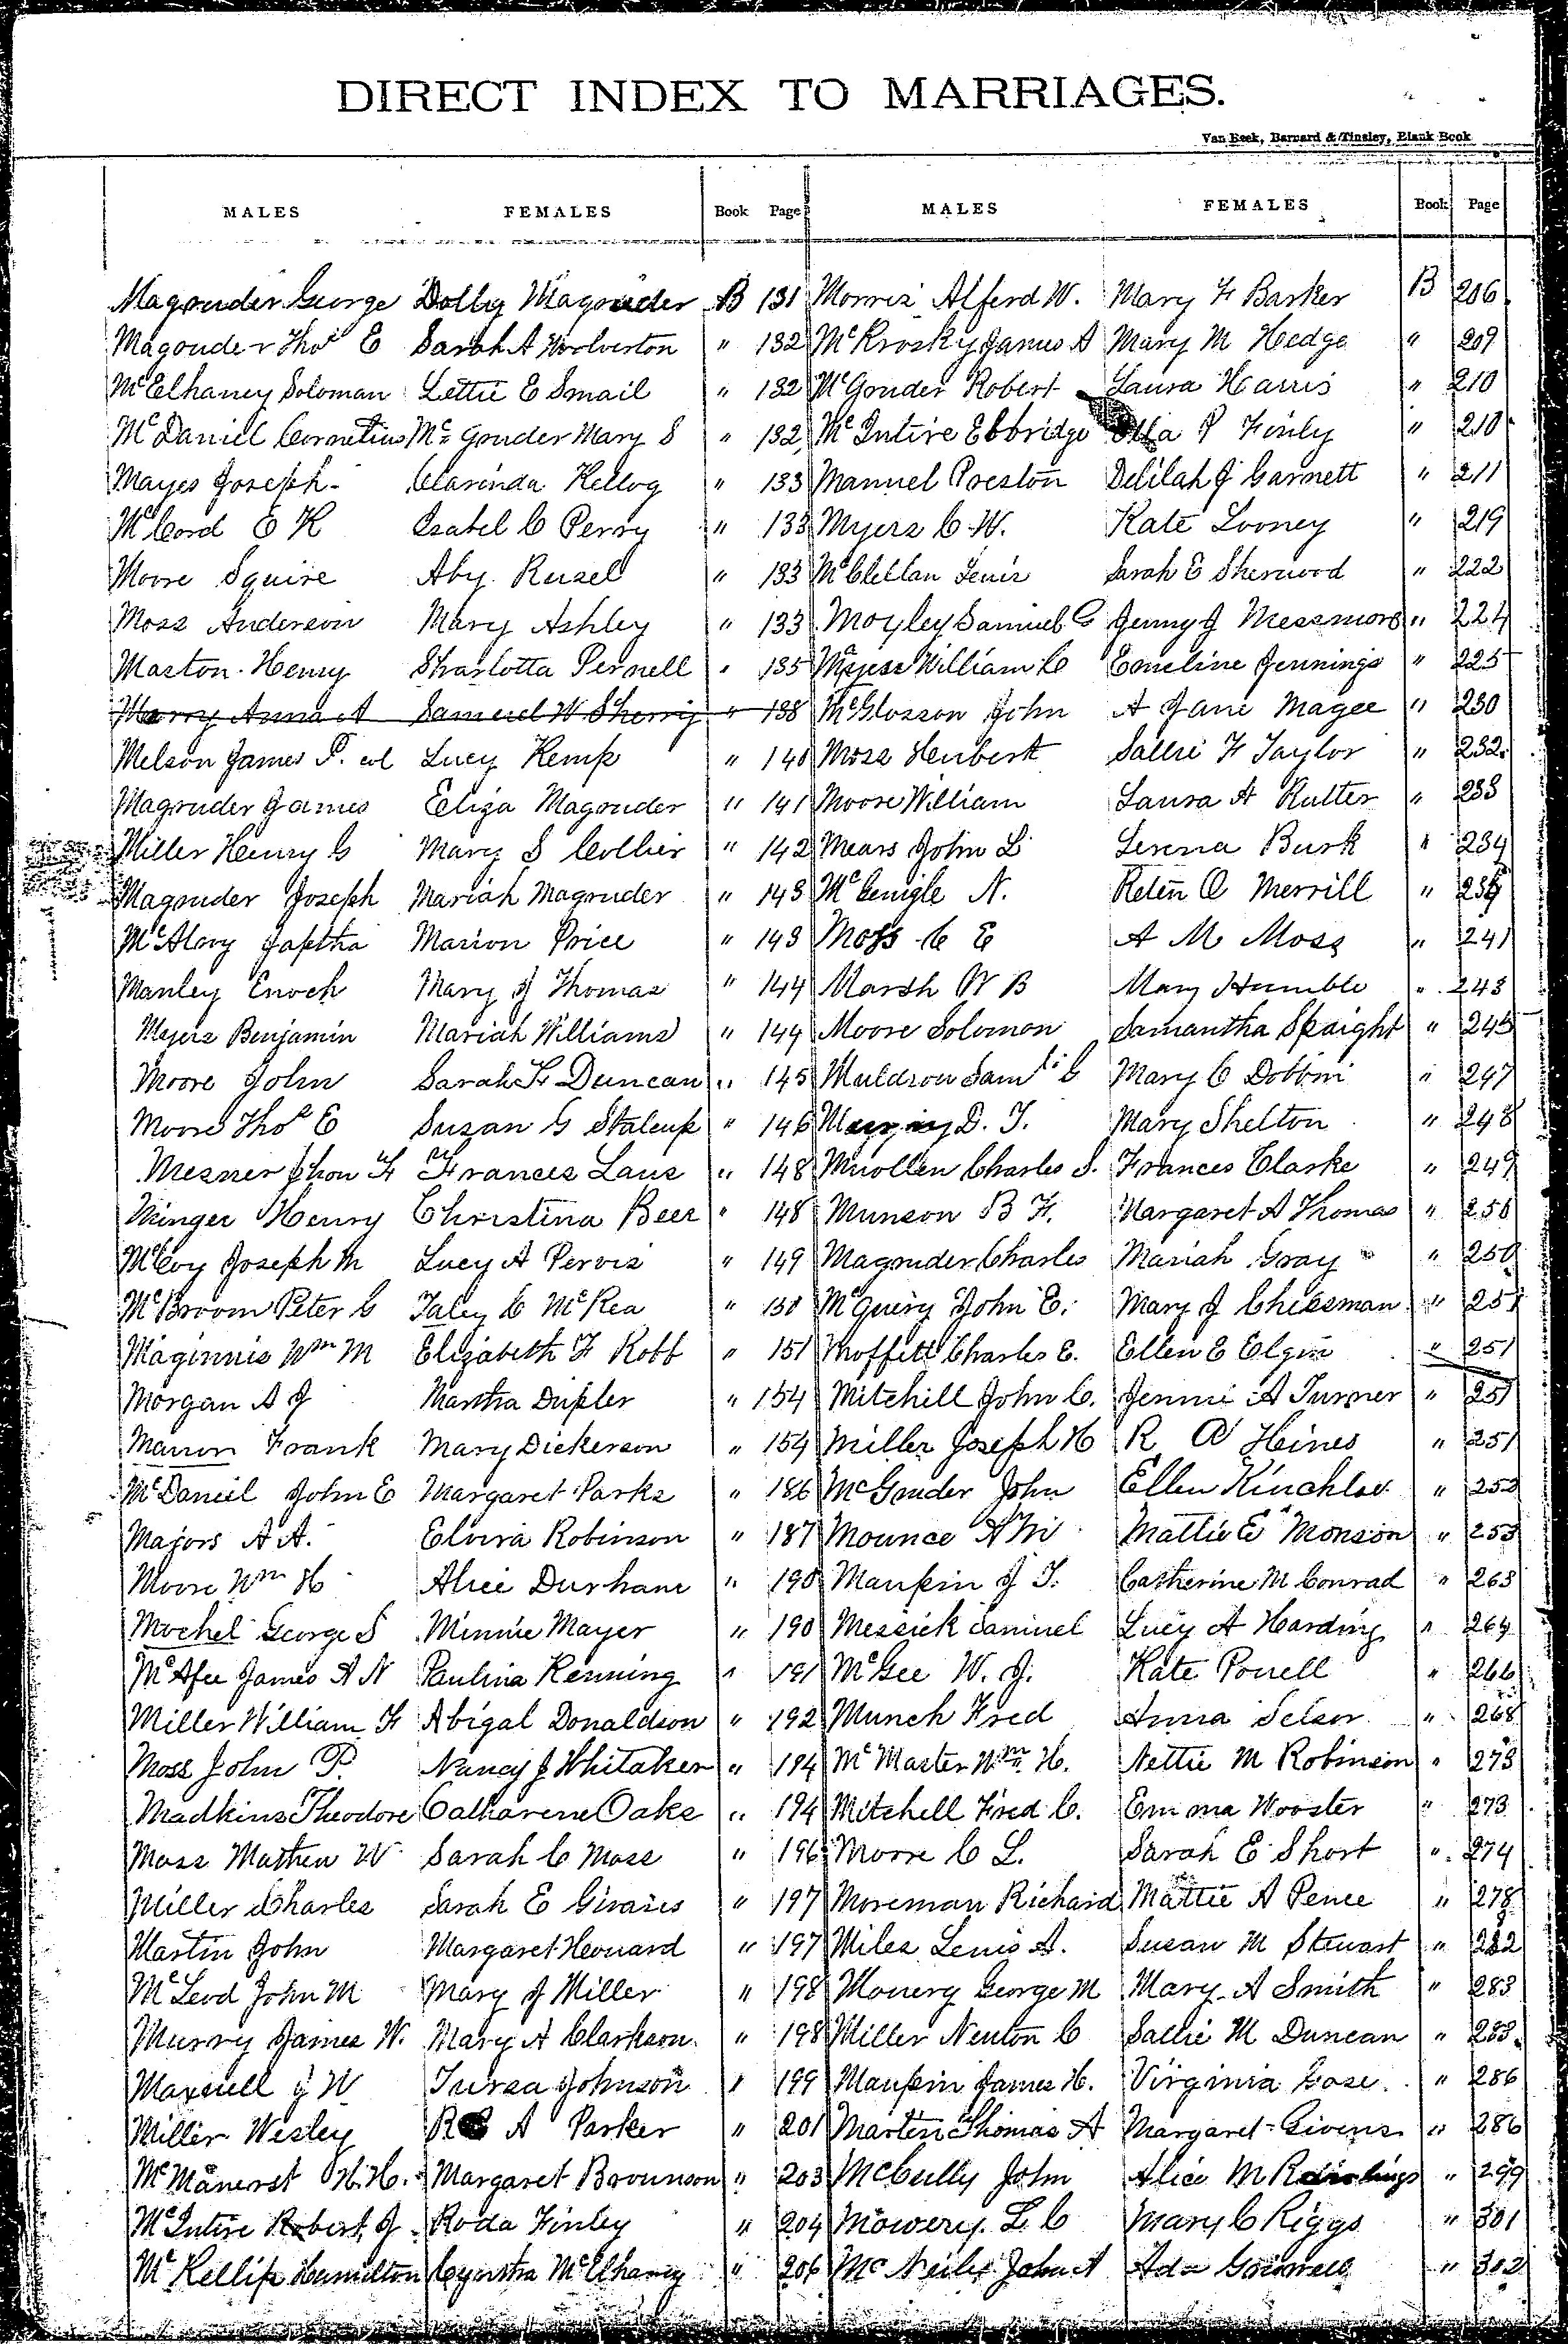 DIRECT INDEX TO MARRIAGES.
Van Beek, Barnard & Tinsley, Blank Book
MALES FEMALES Book Page MALES FEMALES Book Page
Magruder George Dolly Magruder B 131 Morris Alferd W. Mary F Barker B 206
Magouder Thos E Sarah A Wolverton " 132 McKrosky James A Mary M Hedge " 209
McElhaney Soloman Lettie E Smail " 132 McGruder Robert Laura Harris " 210
McDaniel Cornelius McGruder Mary S " 132 McIntire Ebbridge P Finly " 210
Mayes Joseph Clarinda Kellog " 133 Manuel Preston Delilah J Garnett " 211
McCord E K Isabel C Perry " 133 Myers C W. Kate Looney " 219
Moore Squire Aby Rusel " 133 McClellan Lewis Sarah E Sherwood " 222
Moss Anderson Mary Ashley " 133 Moyley Samuel G Jenny J Messmore " 224
Maston Henry Sharlotta Pernell " 135 William C Emeline Jennings " 225
Merry Anna A Samuel W Sherry " 138 McGlosson John A Jane Magee " 230
Melson James P. col Lucy Kemp " 140 Moss Heubert Sallie F Taylor " 232
Magruder James Eliza Magruder " 141 Moore William Laura A Rutter " 233
Miller Henry G Mary S Collier " 142 Mears John L Serena Burk " 234
Magruder Joseph Mariah Magruder " 143 McGenigle N. Merrill "
McAlroy Japtha Marion Price " 143 Moss C E A M Moss " 241
Manley Enoch Mary J Thomas " 144 Marsh W B Mary Humble " 243
Meyers Benjamin Mariah Williams " 144 Moore Solomon Samantha Speight " 245
Moore John Sarah F Duncan " 145 Muldrow Saml C Mary C Dobbin " 247
Moore Thos E Susan G Stalcup " 146 D. T. Mary Shelton " 248
Mesner Jhon F Frances Laus " 148 Mullen Charles S. Frances Clarke " 249
Minger Henry Christina Beer " 148 Munson B F. Margaret A Thomas " 250
McCoy Joseph M Lucy A Pervis " 149 Magruder Charles Mariah Gray " 250
McBroom Peter C Taley C McRea " 150 McQuery John E. Mary J Cheesman " 251
Maginnis Wm M Elizabeth F Robb " 151 Moffitt Charles E. Ellen E Elgin " 251
Morgan A J Martha Dupler " 154 Mitchill John C. Jennie A Turner " 251
Manon Frank Mary Dickerson " 154 Miller Joseph H R A Heines " 251
McDaniel John E Margaret Parks " 186 McGruder John Ellen Kinchloe " 252
Majors A A. Elvira Robinson " 187 Mounce A W Mattie E Monson " 253
Moore Wm H Alice Durham " 190 Maupin J T. Catherine M Conrad " 263
Mochel George S Minnie Mayer " 190 Messick Samuel Lucy A Harding " 264
McAfee James A N Paulina Renning " 191 McGee W. J. Kate Powell " 266
Miller William F Abigal Donaldson " 192 Munch Fred Anna Selsor " 268
Moss John P. Nancy J Whitaker " 194 McMaster Wm H. Nettie M Robinson " 273
Madkins Theodore Catharene Oaks " 194 Mitchell Fred C. Emma Wooster " 273
Moss Mathew W Sarah C Moss " 196 Moore C L. Sarah E Short " 274
Miller Charles Sarah E Givans " 197 Moreman Richard Mattie A Pence " 278
Martin John Margaret Heouard " 197 Miles Lewis A. Susan M Stewart " 282
McLeod John M Mary J Miller " 198 Mowery George M Mary A Smith " 283
Murry James W. Mary A Clarkson " 198 Miller Newton C Sallie M Duncan " 283
Maxwell J W Tursa Johnson " 199 Maupin James H. Virginia Gose " 286
Miller Wesley R A Parker " 201 Marten Thomas A Margaret Givens " 286
McManerst H. H. Margaret Brounson " 203 McCully John Alice M " 299
McIntire Robert J Roda Finley " 204 Mowery L C Mary C Riggs " 301
McKellip Hamilton Cynstha McElhaney " 206 McNeily John A Ada " 302